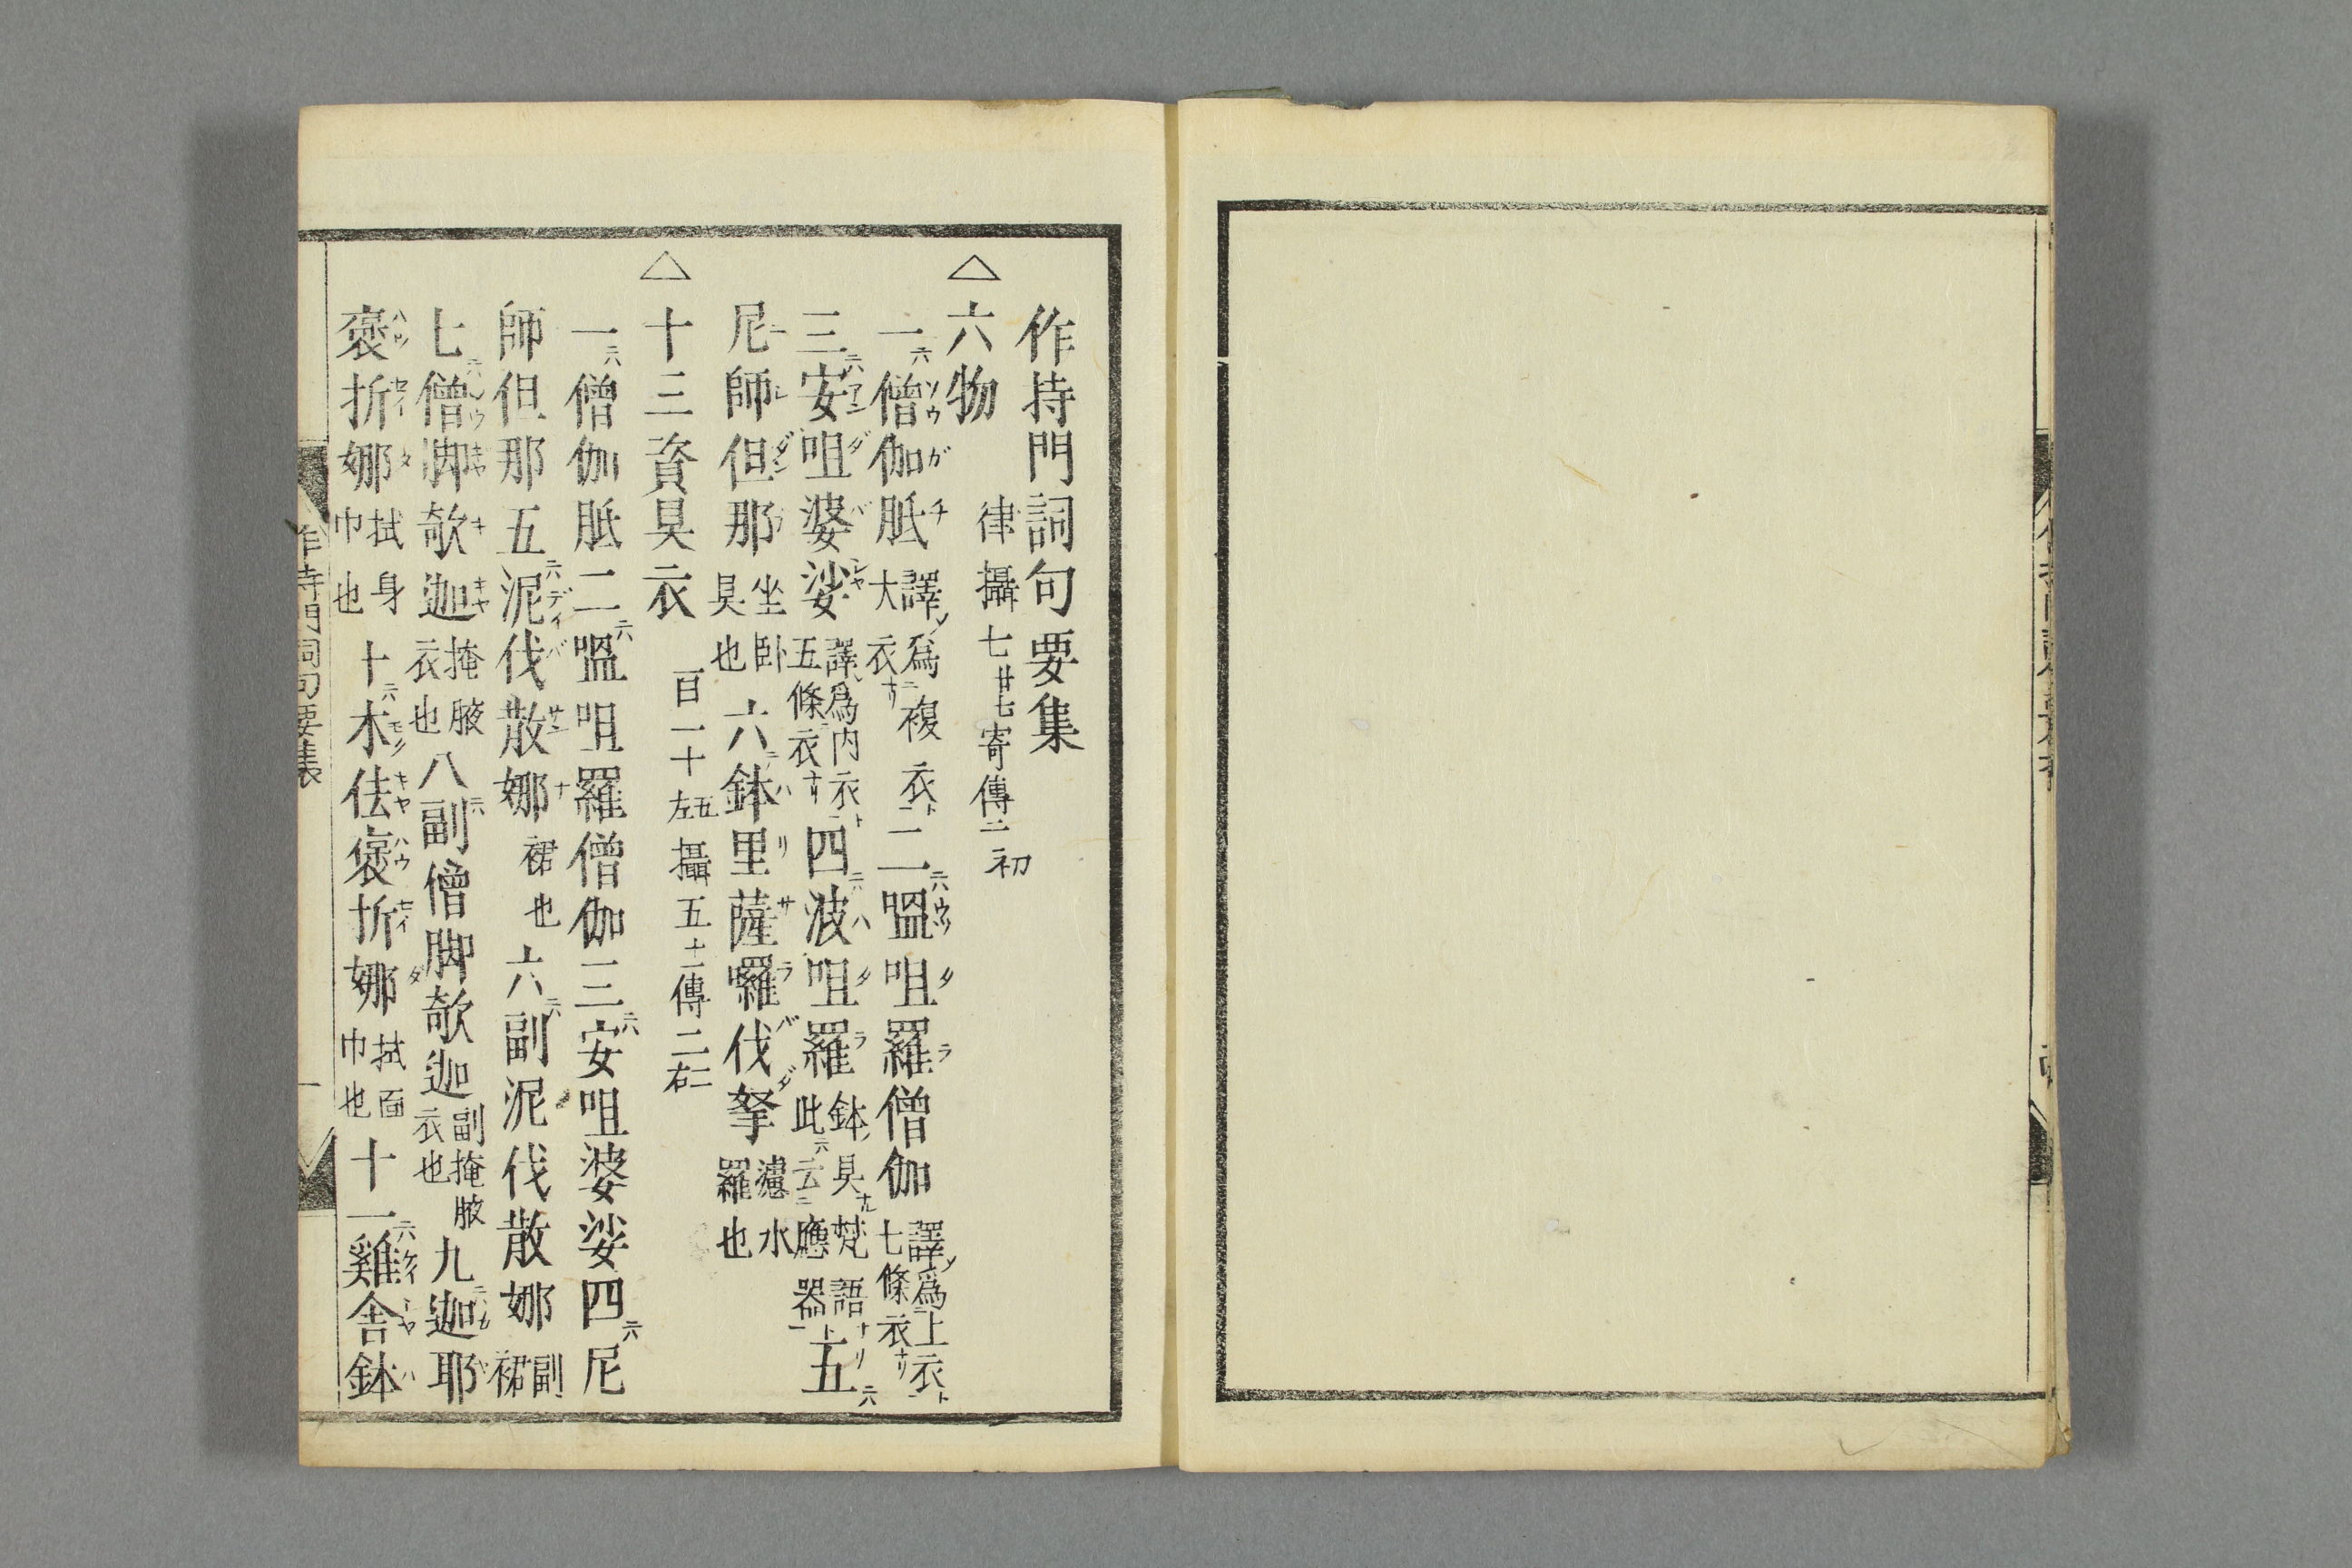 作持門詞句要集
△六物 律攝七廿七寄傳二初
一僧伽胝譯爲複衣大衣二嗢呾羅僧伽譯爲上衣七條衣
三安呾婆娑譯爲內衣五條衣四波呾羅鉢具梵語此云應器五
尼師但那坐臥具也六鉢里薩囉伐拏濾水羅也
△十三資具衣 百一十五左攝五十二傳二二右
一僧伽胝二嗢呾羅僧伽三安呾婆娑四尼
師但那五泥伐散娜裙也六副泥伐散娜副裙
七僧脚欹迦掩腋衣也八副僧脚欹迦副掩腋衣也九迦耶
褒折娜拭身巾也十木佉褒折娜拭面巾也十一雞舍鉢
作持門詞句要集 一